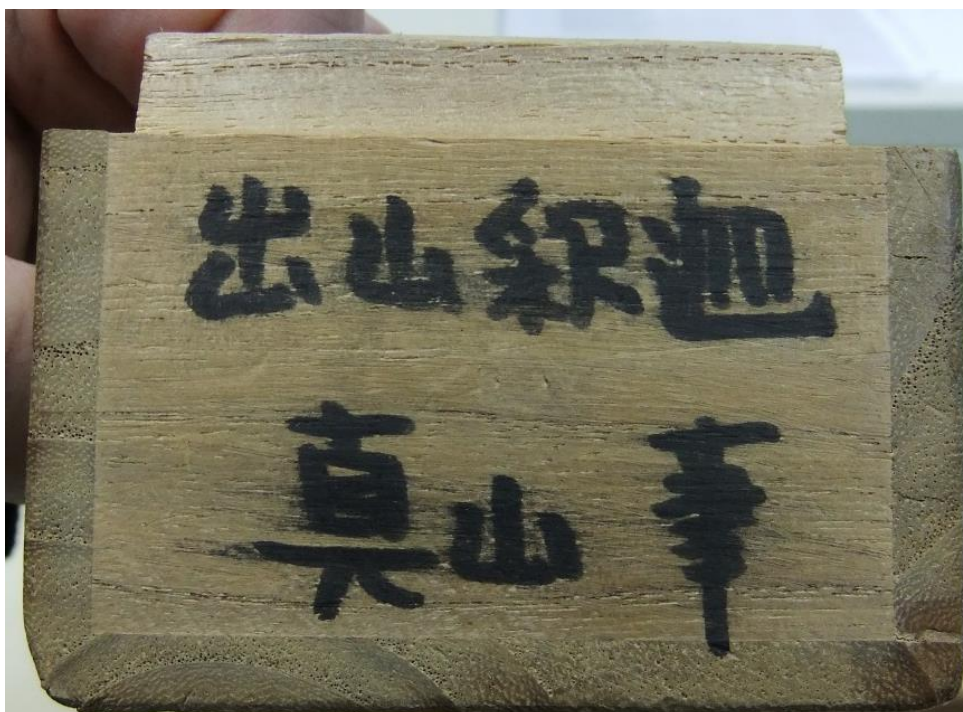 出山釈迦
真山筆